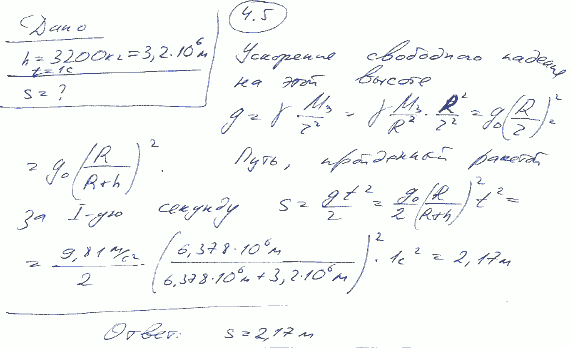 4.5
Дано
h = 3200км = 3,2·10⁶м
t = 1с
s = ?
Ускорение свободного падения
на этой высоте
g = γ · Mз/r² = γ Mз/R² · R²/r² = g₀(R/r)² =
= g₀(R/(R+h))². Путь, пройденный ракетой
за I-ую секунду s = gt²/2 = g₀/2 (R/(R+h))² t² =
= 9,81 м/с²/2 · (6,378·10⁶м/(6,378·10⁶м + 3,2·10⁶м))² · 1с² = 2,17м
Ответ: s = 2,17м